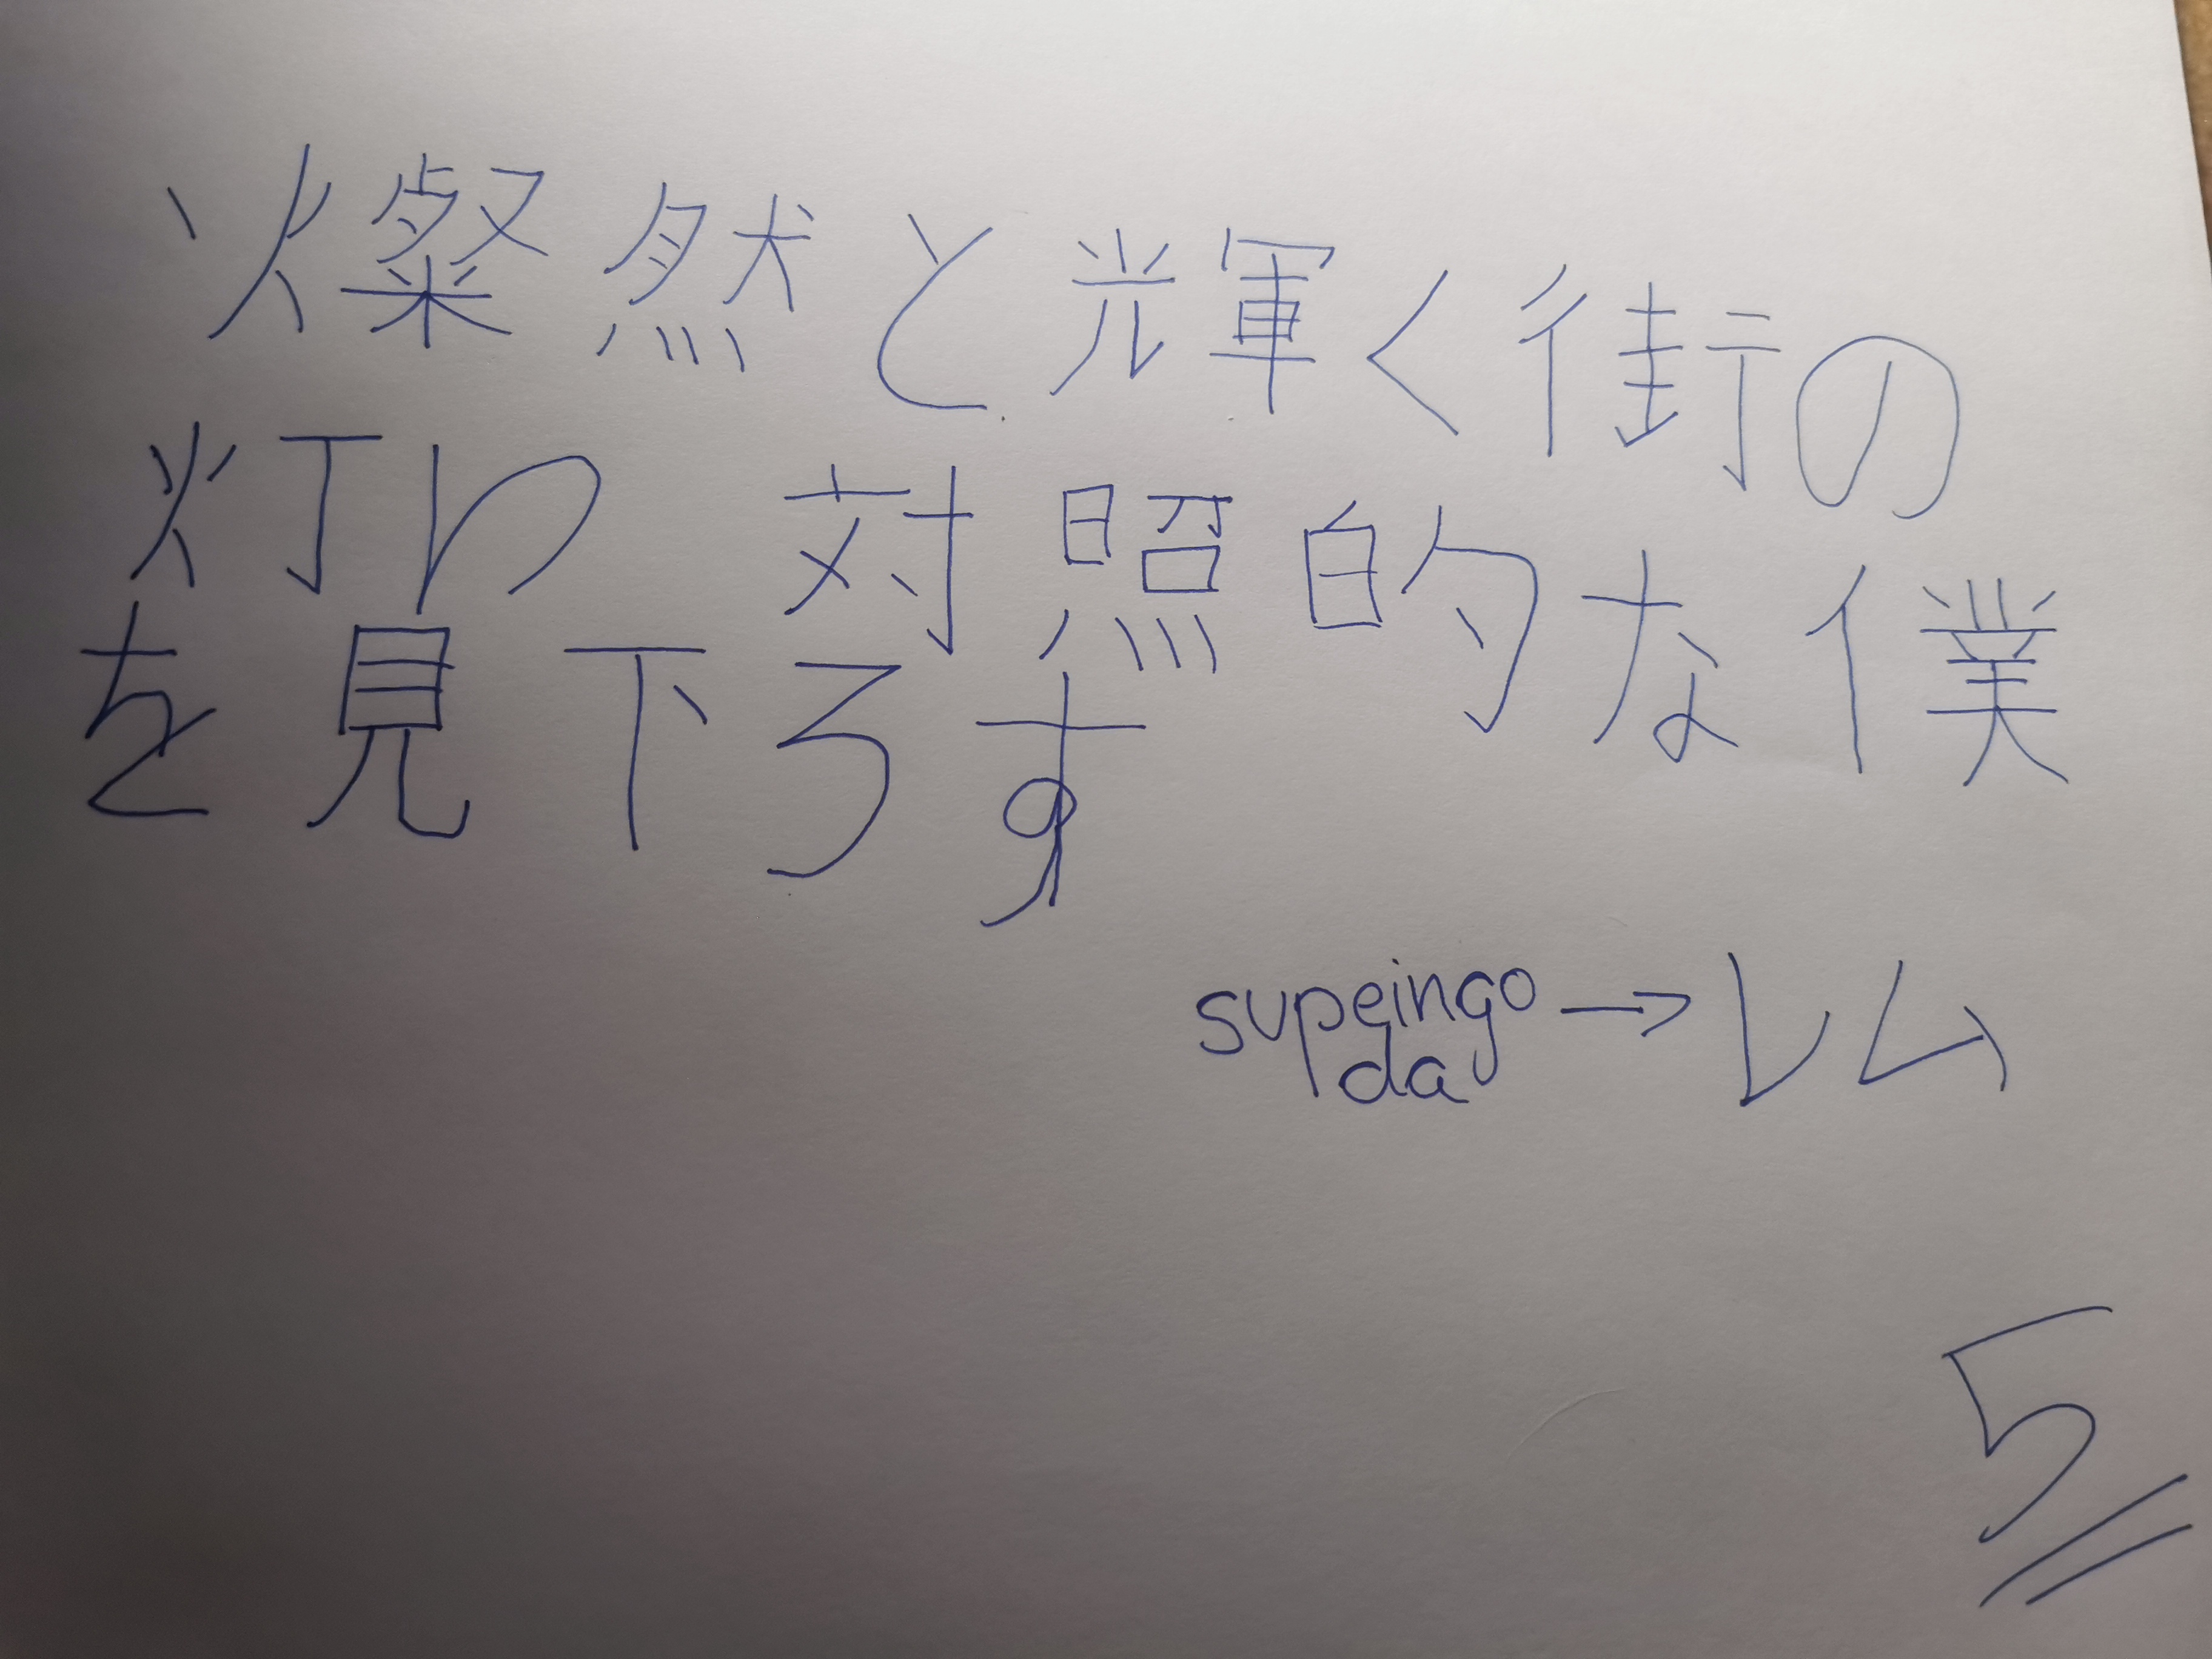 燦然と輝く街の
灯り 対照的な僕
を見下ろす
supeingo → レム
da
5